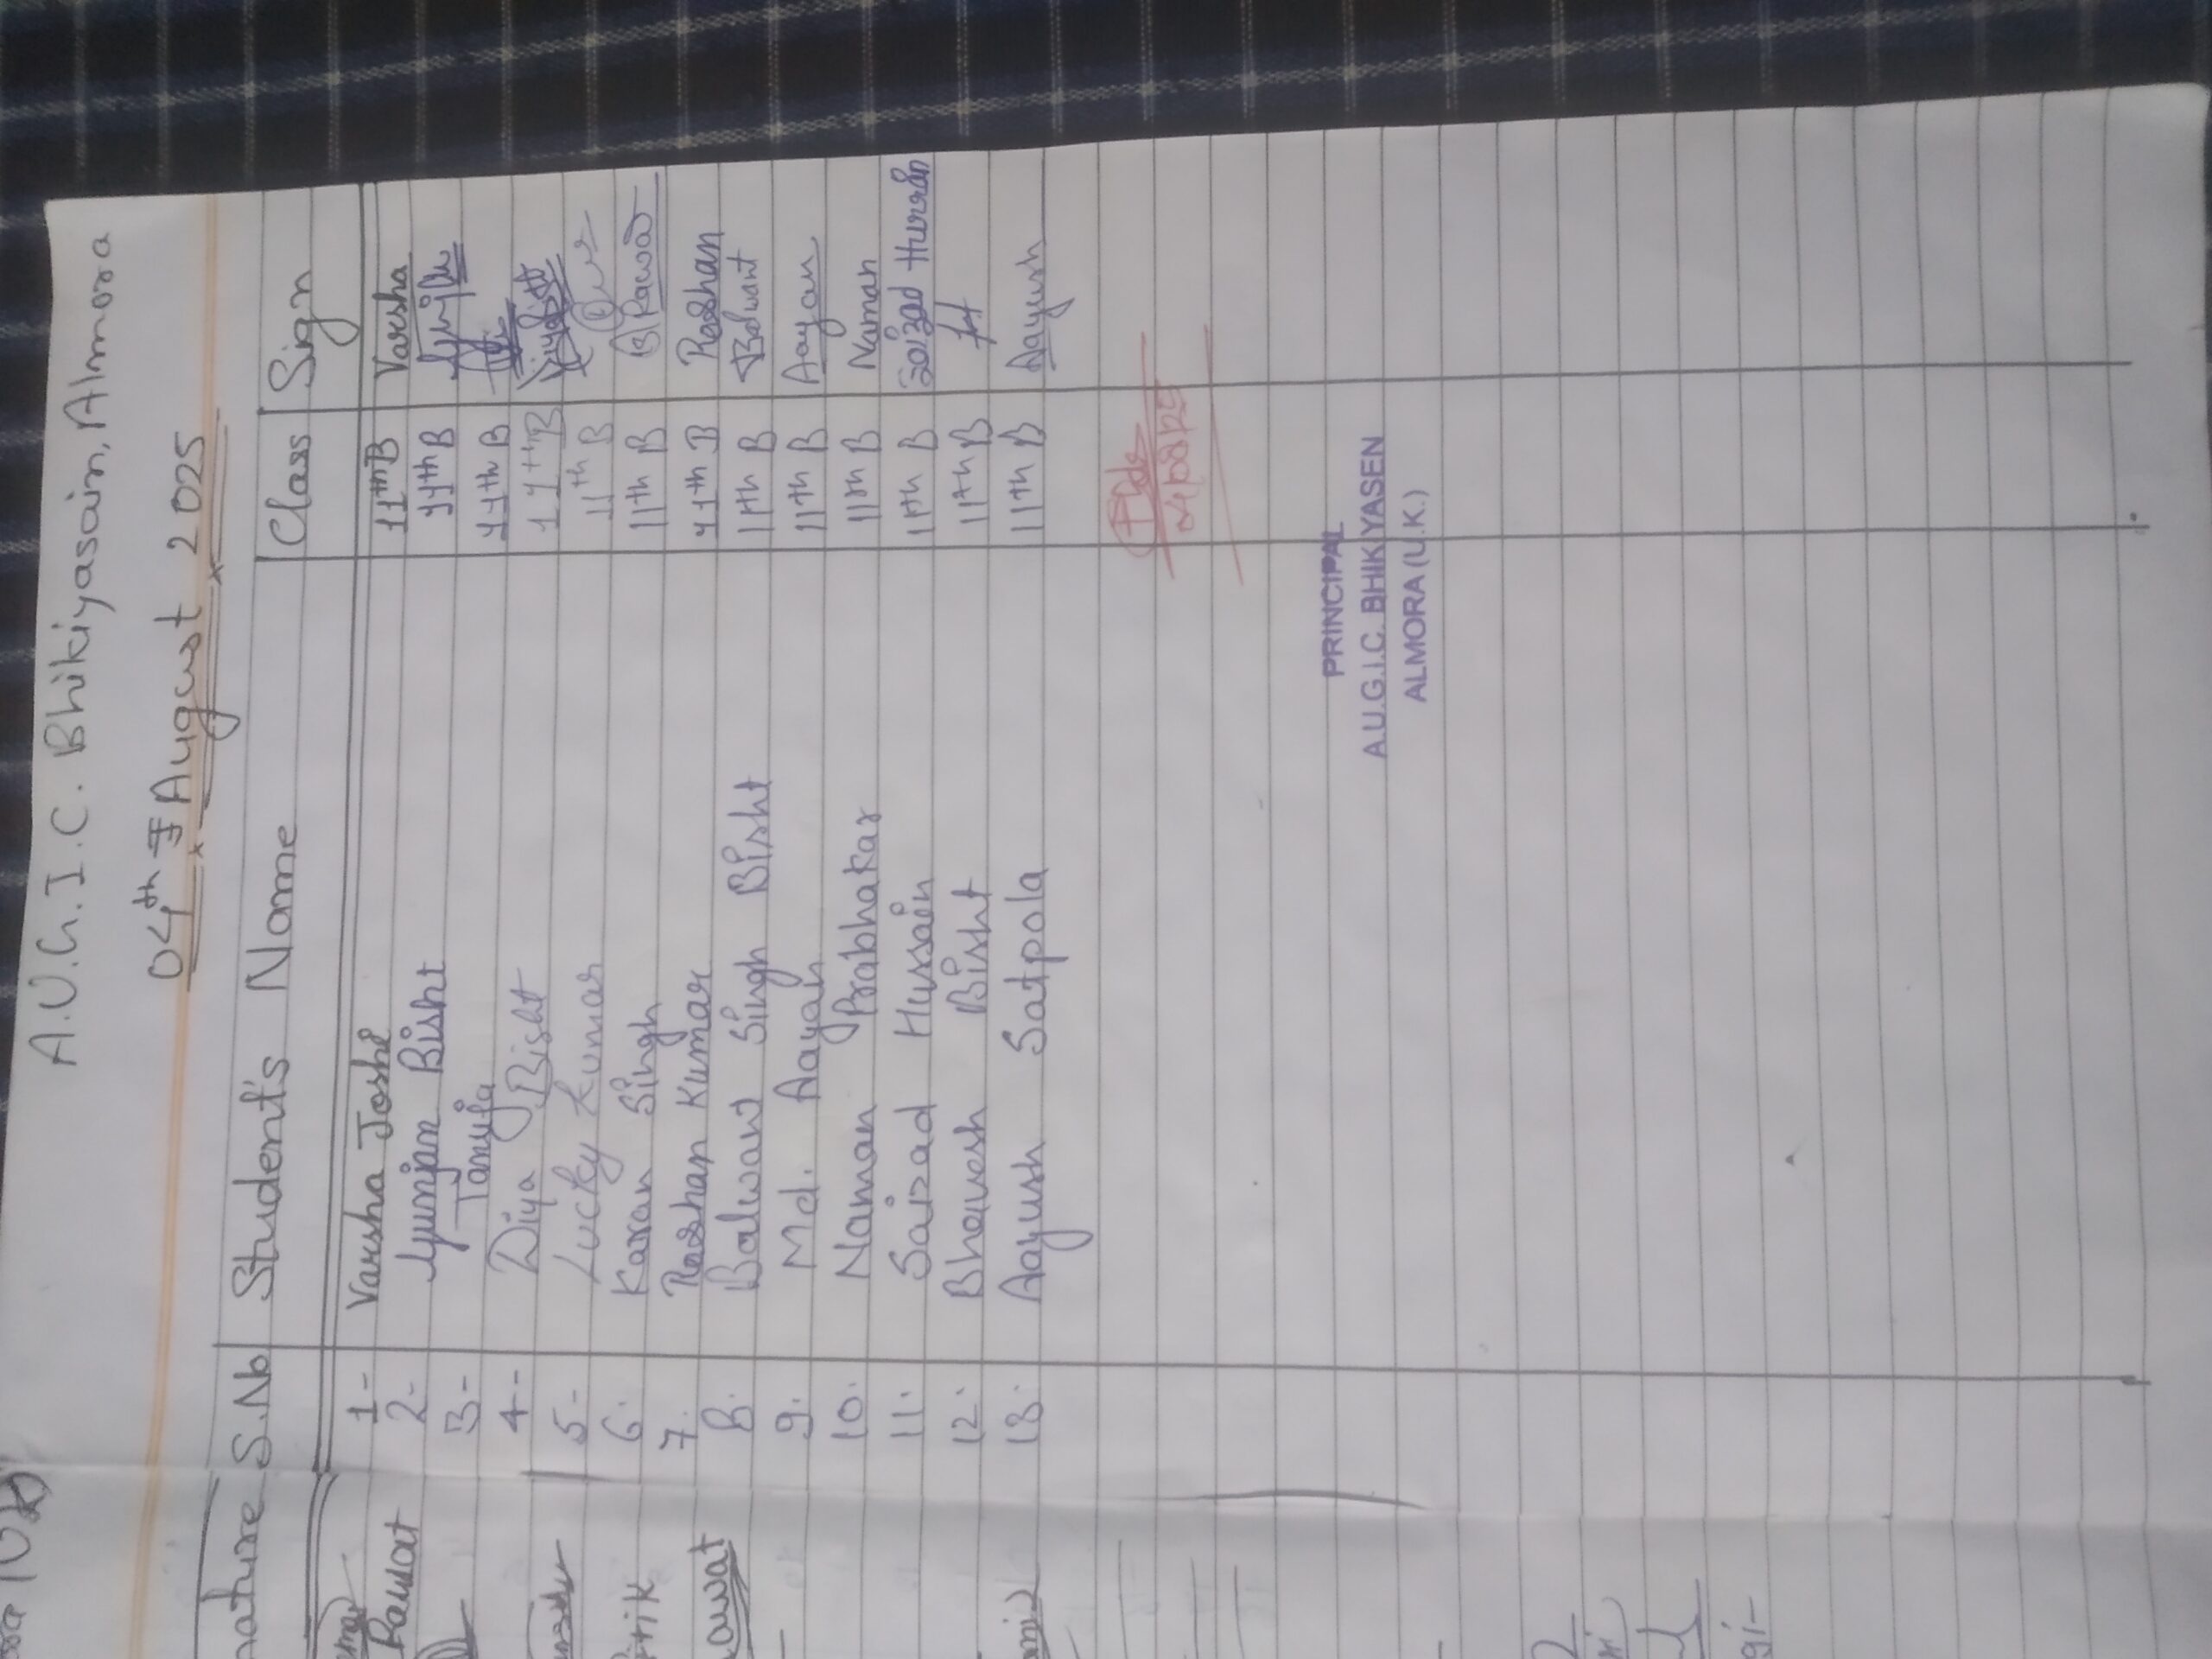 A.U.G.I.C. Bhikiyasain, Almora
04th August 2025
S.No Student's Name Class Sign
1- Varsha Joshi 11th B Varsha
2- Gunjan Bisht 11th B
3- Tanuja 11th B
4- Diya Bisht 11th B
5- Lucky Kumar 11th B
6. Karan Singh 11th B
7. Roshan Kumar 11th B Roshan
8. Balwant Singh Bisht 11th B Balwant
9. Md. Aayan 11th B Aayan
10. Naman Prabhakar 11th B Naman
11. Saizad Hussain 11th B Saizad Hussain
12. Bhavesh Bisht 11th B
13. Aayush Satpola 11th B Aayush
PRINCIPAL
A.U.G.I.C. BHIKIYASEN
ALMORA (U.K.)
nature
Rawat
awat